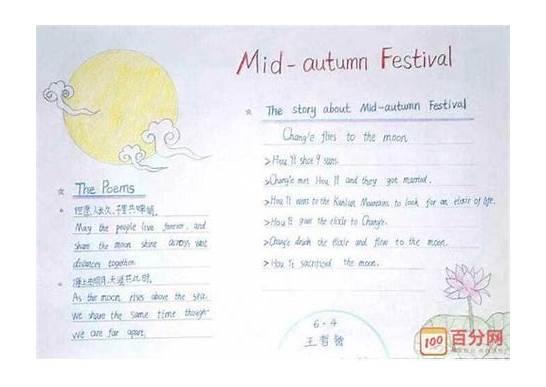 Mid-autumn Festival
☆ The story about Mid-autumn Festival
Chang'e flies to the moon
>Hou Yi shot 9 suns.
>Chang'e met Hou Yi and they got married.
>Hou Yi went to the Kunlun Mountains to look for an elixir of life.
>Hou Yi gave the elixir to Chang'e.
>Chang'e drank the elixir and flew to the moon.
>Hou Yi sacrificed the moon.
☆ The Poems
但愿人长久,千里共婵娟.
May the people live forever, and
share the moon shine across vast
distances together.
海上生明月,天涯共此时.
As the moon rises above the sea.
we share the same time though
we are far apart.
6·4
王哲敏
100 百分网